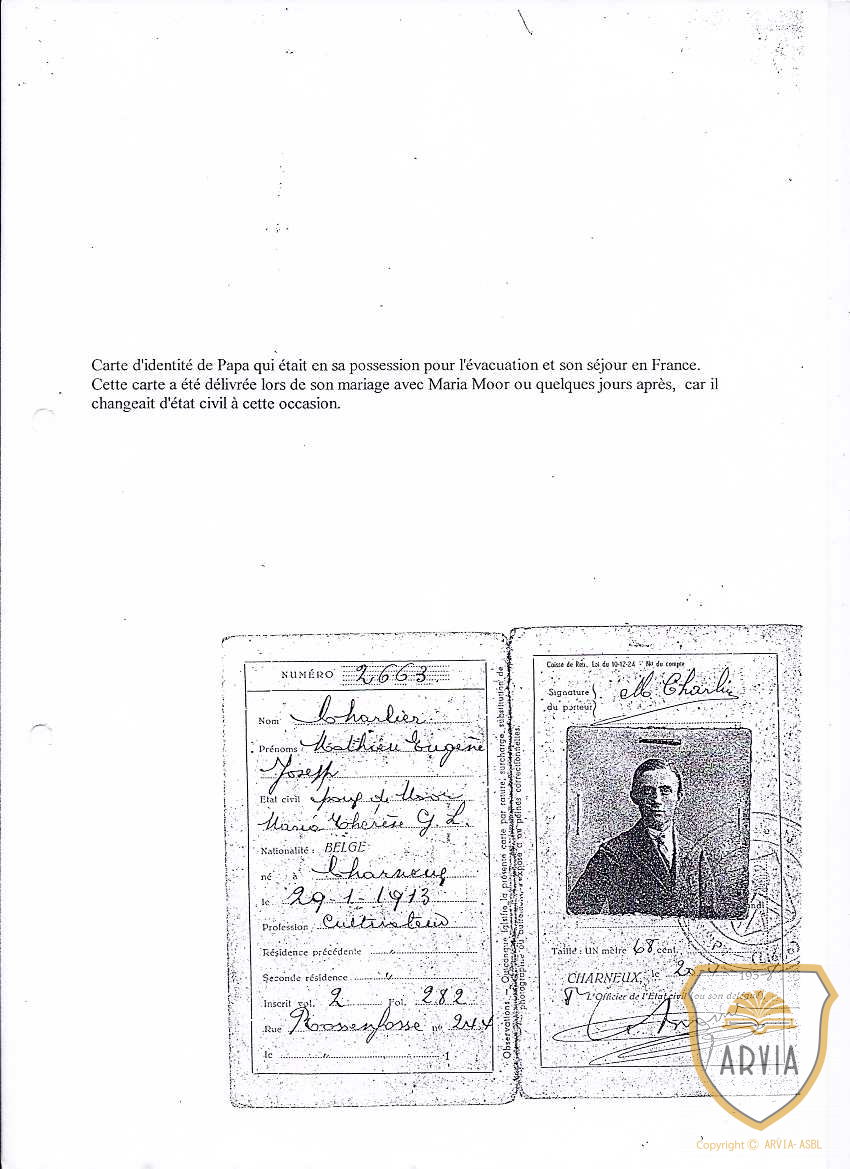 Carte d'identité de Papa qui était en sa possession pour l'évacuation et son séjour en France.
Cette carte a été délivrée lors de son mariage avec Maria Moor ou quelques jours après, car il
changeait d'état civil à cette occasion.
NUMÉRO 2663
Nom Charlier
Prénoms Mathieu Eugène
Joseph
Etat civil époux de Moor
Maria Thérèse G. L.
Nationalité : BELGE
né à Charneux
le 29-1-1913
Profession Cultivateur
Résidence précédente "
Seconde résidence "
Inscrit vol. 2 Fol. 282
Rue Rossenfosse nº 244
le
Observations. - Quiconque falsifie la présente carte par rature, surcharge, substitution de
photographie ou autrement s'expose à des peines correctionnelles.
Caisse de Ret. Loi du 10-12-24 - Nº du compte
Signature
du porteur
M Charlier
Taille : UN mètre 68 cent.
CHARNEUX, le
L'Officier de l'Etat civil (ou son délégué),
(Liége)
ARVIA
Copyright © ARVIA-ASBL